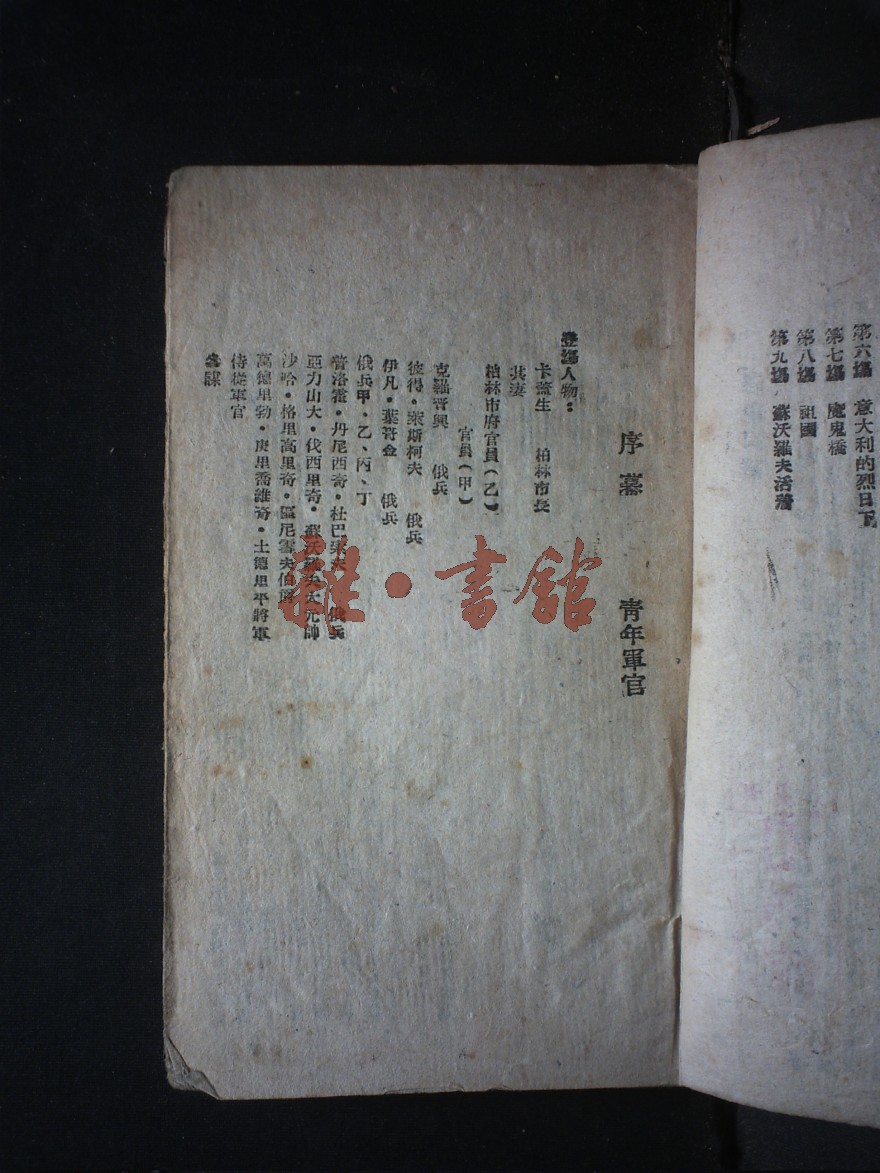 第六場　意大利的烈日下
第七場　魔鬼橋
第八場　祖國
第九場　蘇沃羅夫活着
序幕　青年軍官
登場人物：
卡蓋生　柏林市長
其妻
柏林市府官員(乙)
官員(甲)
克羅晋興　俄兵
彼得·萊斯柯夫　俄兵
伊凡·葉哥金　俄兵
俄兵甲·乙、丙、丁
普洛霍·丹尼西奇·杜巴索夫　俄兵
亞力山大·伐西里奇·蘇沃羅夫大元帥
沙哈·格里高里奇·尼雪夫伯爵
高德里勃·庚里喬維奇·土德里平將軍
侍從軍官
參謀
雜·書館